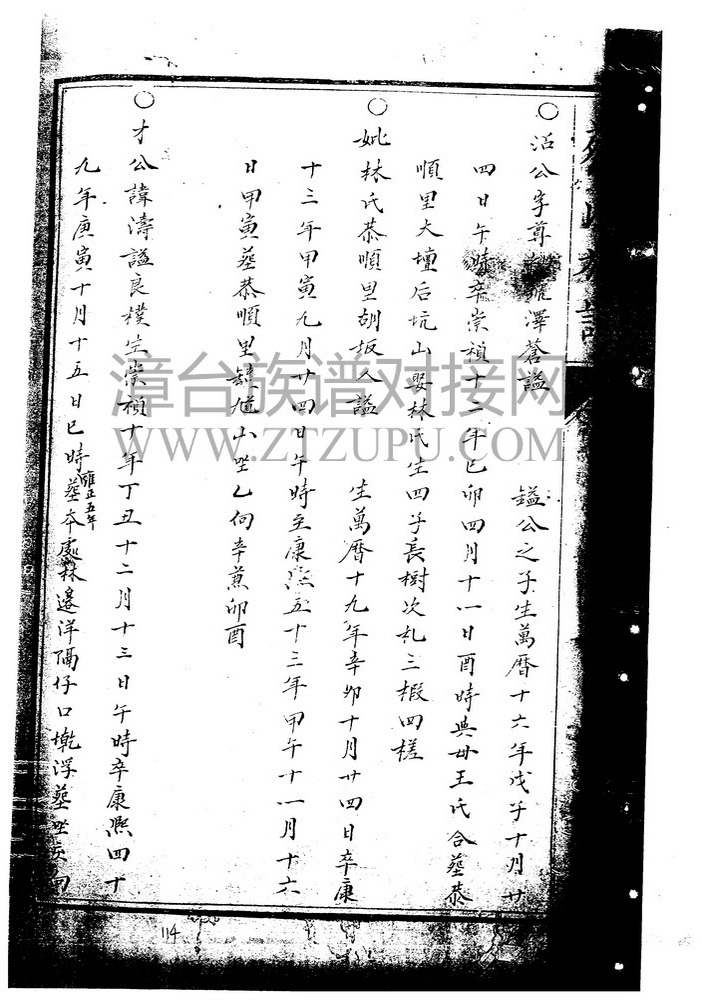 ○活公字尊 號澤蒼諡 鎰公之子生萬曆十六年戊子十月廿
四日午時卒崇禎十二年己卯四月十一日酉時與毌王氏合葬恭
順里大壇后坑山娶林氏生四子長樹次札三椵四槎
○妣林氏恭順里胡坂人諡 生萬曆十九年辛卯十月廿四日卒康
十三年甲寅九月廿四日午時至康熙五十三年甲午十一月十六
日甲寅葬恭順里 山坐乙向辛兼卯酉
○才公諱濤諡良樸生崇禎十年丁丑十二月十三日午時卒康熙四十
九年庚寅十月十五日巳時雍正五年葬本處林邊洋隔仔口墘浮葬坐亥向
114
漳台族谱对接网
WWW.ZTZUPU.COM